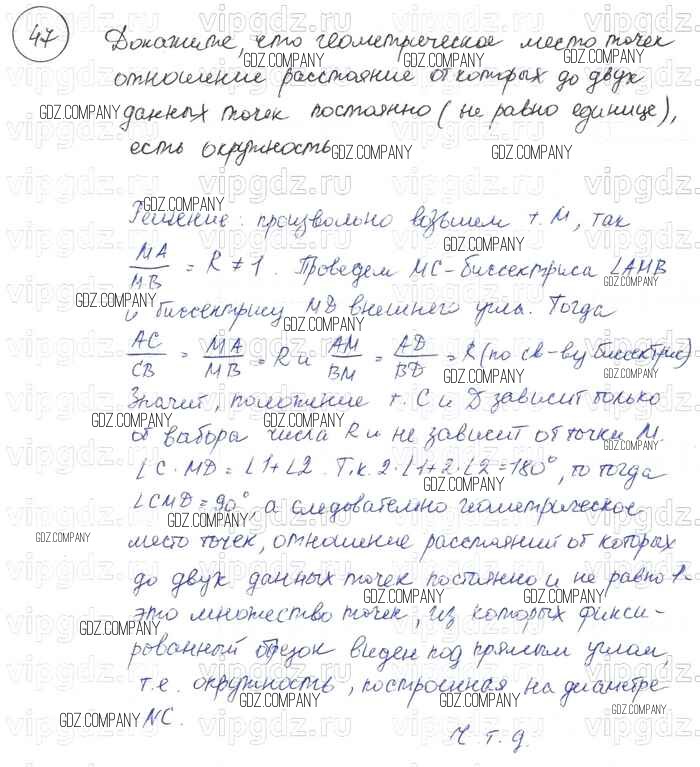 47
Докажите, что геометрическое место точек
отношение расстояние от которых до двух
данных точек постоянно (не равно единице),
есть окружность.
Решение: произвольно возьмем т. М, так
MA/MB = R ≠ 1. Проведем MC-биссектриса ∠AMB
и биссектрису MD внешнего угла. Тогда
AC/CB = MA/MB = R и AM/BM = AD/BD = R (по св-ву биссектрис)
Значит, положение т. C и D зависит только
от выбора числа R и не зависит от точки M.
∠C·MD = ∠1+∠2. Т.к. 2·∠1+2·∠2=180°, то тогда
∠CMD = 90°, а следователно геометрическое
место точек, отношение расстояний от которых
до двух данных точек постоянно и не равно 1-
это множество точек, из которых фикси-
рованный отрезок виден под прямым углом,
т.е. окружность, построенная на диаметре
NC.
Ч.т.д.
GDZ.COMPANY
vipgdz.ru